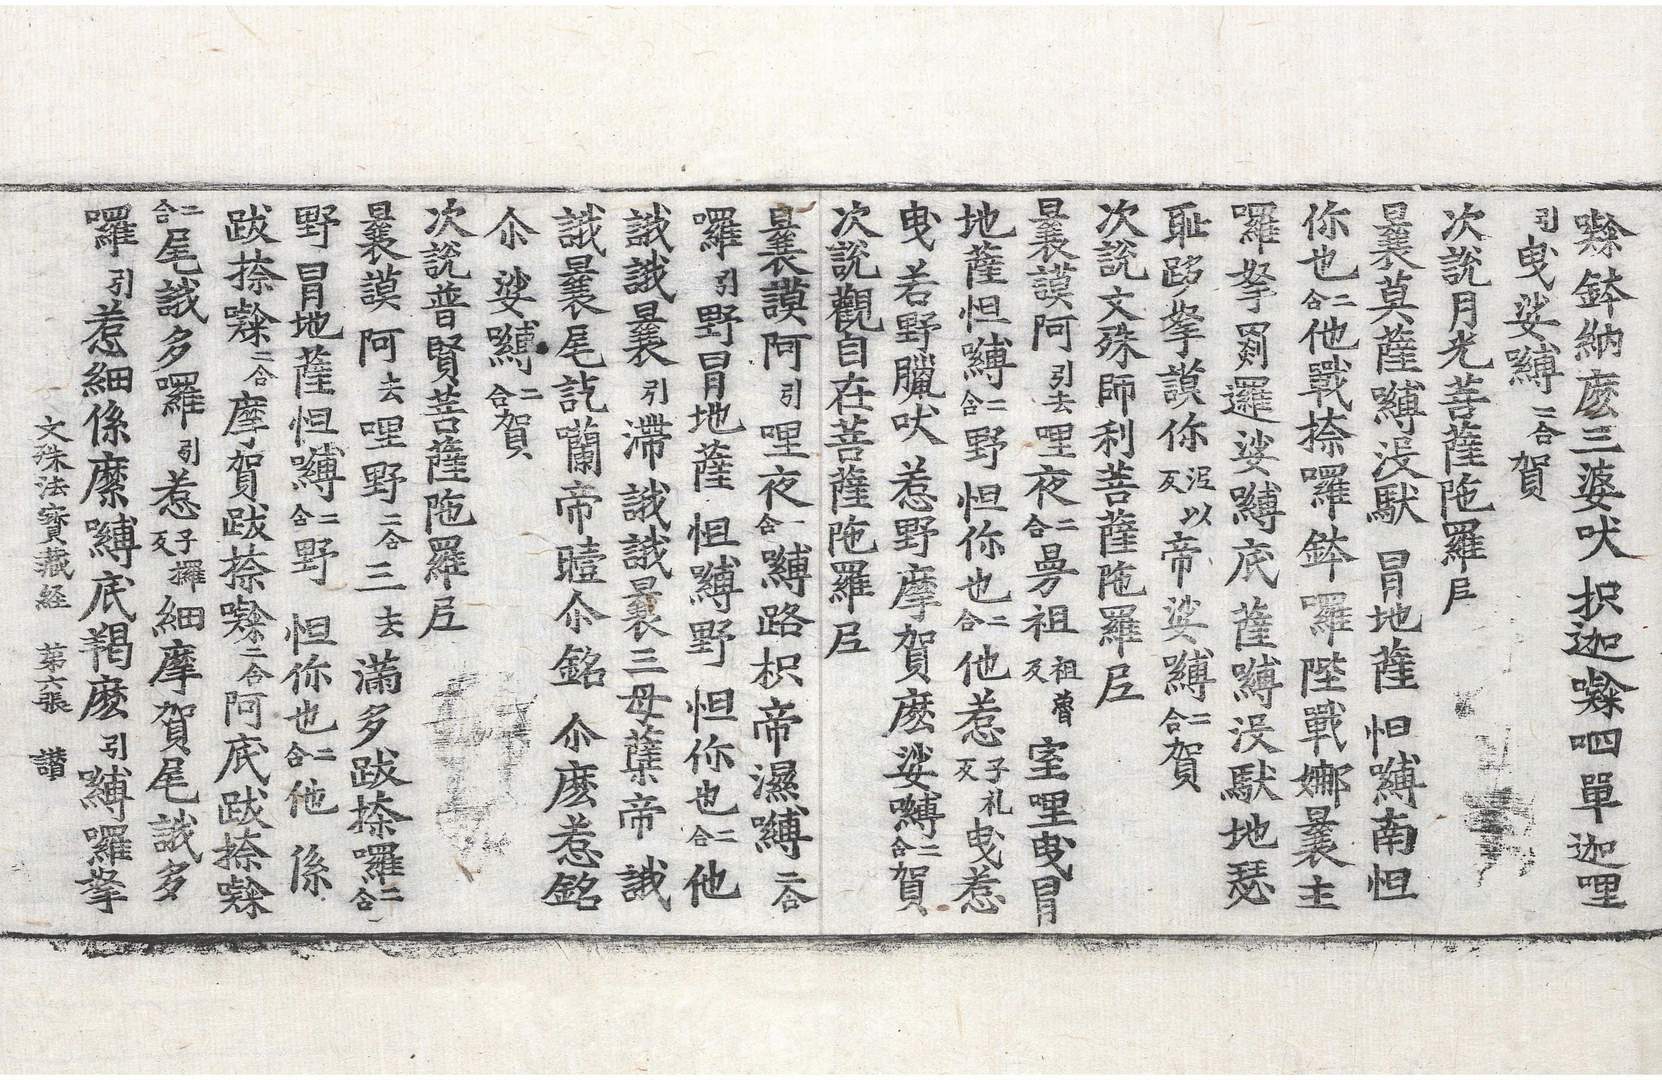 𡃤鉢納麽三婆吠抧迦𡃤呬單迦哩
引曳娑嚩二合賀
次說月光菩薩陁羅𡰱
曩莫薩嚩没馱冐地薩怛嚩南怛
你也二合他戰捺囉鉢囉陛戰娜曩主
囉拏剡邏娑嚩底薩嚩没馱地瑟
耻跢拏謨你以帝娑嚩二合賀
次說文殊師利菩薩陁羅𡰱
曩謨阿引去哩夜二合曼祖室哩曳冐
地薩怛嚩二合野怛你也二合他惹子礼反曳惹
曳若野臘吠惹野摩賀麽娑嚩二合賀
次說觀自在菩薩陁羅𡰱
曩謨阿引哩夜二合嚩路枳帝濕嚩二合
囉引野冐地薩怛嚩野怛你也二合他
誐誐曩引滯誐誐曩三母薩帝誐
誐曩尾訖囒帝曀尒銘尒麽惹銘
尒娑嚩二合賀
次說普賢菩薩陁羅𡰱
曩謨阿去哩野二合三去滿多跋捺囉二合
野冐地薩怛嚩二合野怛你也二合他係
跋捺𡃤二合摩賀跋捺𡃤二合阿底跋捺𡃤
二合尾誐多囉引惹細摩賀尾誐多
囉引惹細係縻嚩底羯麽引嚩囉拏
文殊法寶藏経 第六張 讃